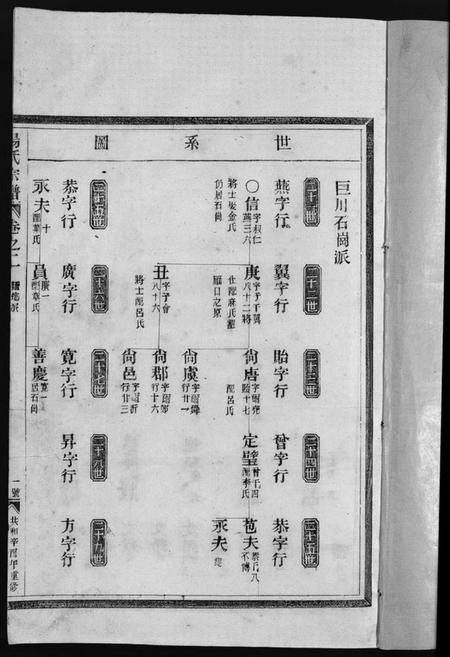 世系圖
巨川石崗派
二十一世
燕字行
信
字叔仁
燕三六
將士娶金氏
仍居石崗
二十二世
翼字行
庚
翼
八十二將
仕
雁口之原
丑
字子會
八十六
將士配呂氏
二十三世
貽字行
尙唐
貽十七
配呂氏
尙虞
行廿一
尙郡
行十六
尙邑
行廿三
二十四世
曾字行
定
曾千四
配李氏
二十五世
恭字行
苞夫
恭行八
不傳
永夫
二十五世
恭字行
永夫
十
配葉氏
二十六世
廣字行
員
廣一
配章氏
二十七世
寬字行
善慶
寬一
居石崗
二十八世
昇字行
二十九世
方字行
楊氏宗譜
卷之二
一號
共和辛酉年重修